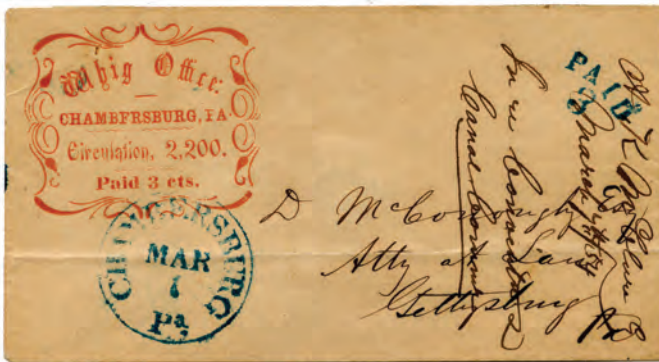 Whig Office.
CHAMBERSBURG, PA.
Circulation, 2,200.
Paid 3 cts.
CHAMBERSBURG
MAR
Pa
PAID
3
D McConaughy Esq
Atty at Law
Gettysburg
Pa
A K McClure
March
In re
Canal